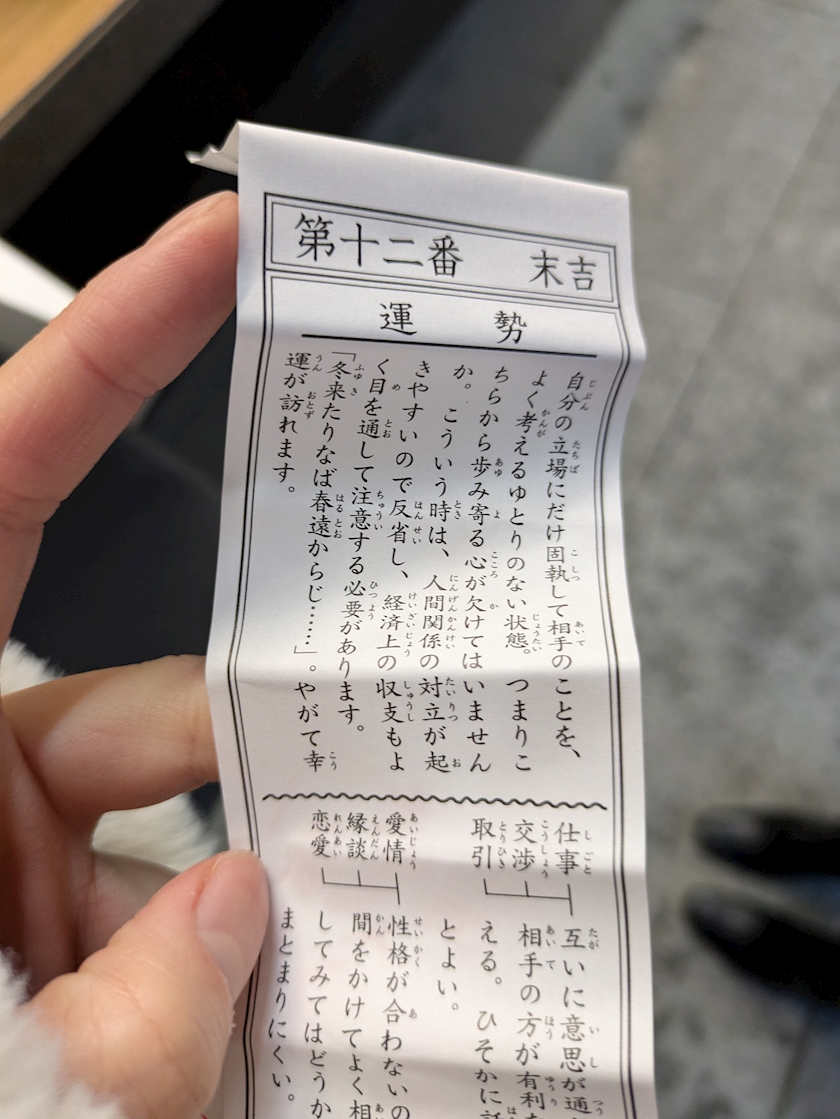 第十二番 末吉
運勢
自分の立場にだけ固執して相手のことを、
よく考えるゆとりのない状態。つまりこ
ちらから歩み寄る心が欠けてはいません
か。こういう時は、人間関係の対立が起
きやすいので反省し、経済上の収支もよ
く目を通して注意する必要があります。
「冬来たりなば春遠からじ……」。やがて幸
運が訪れます。
仕事
交渉
取引
互いに意思が通
相手の方が有利
える。ひそかに
とよい。
愛情
縁談
恋愛
性格が合わないの
間をかけてよく相
してみてはどうか
まとまりにくい。